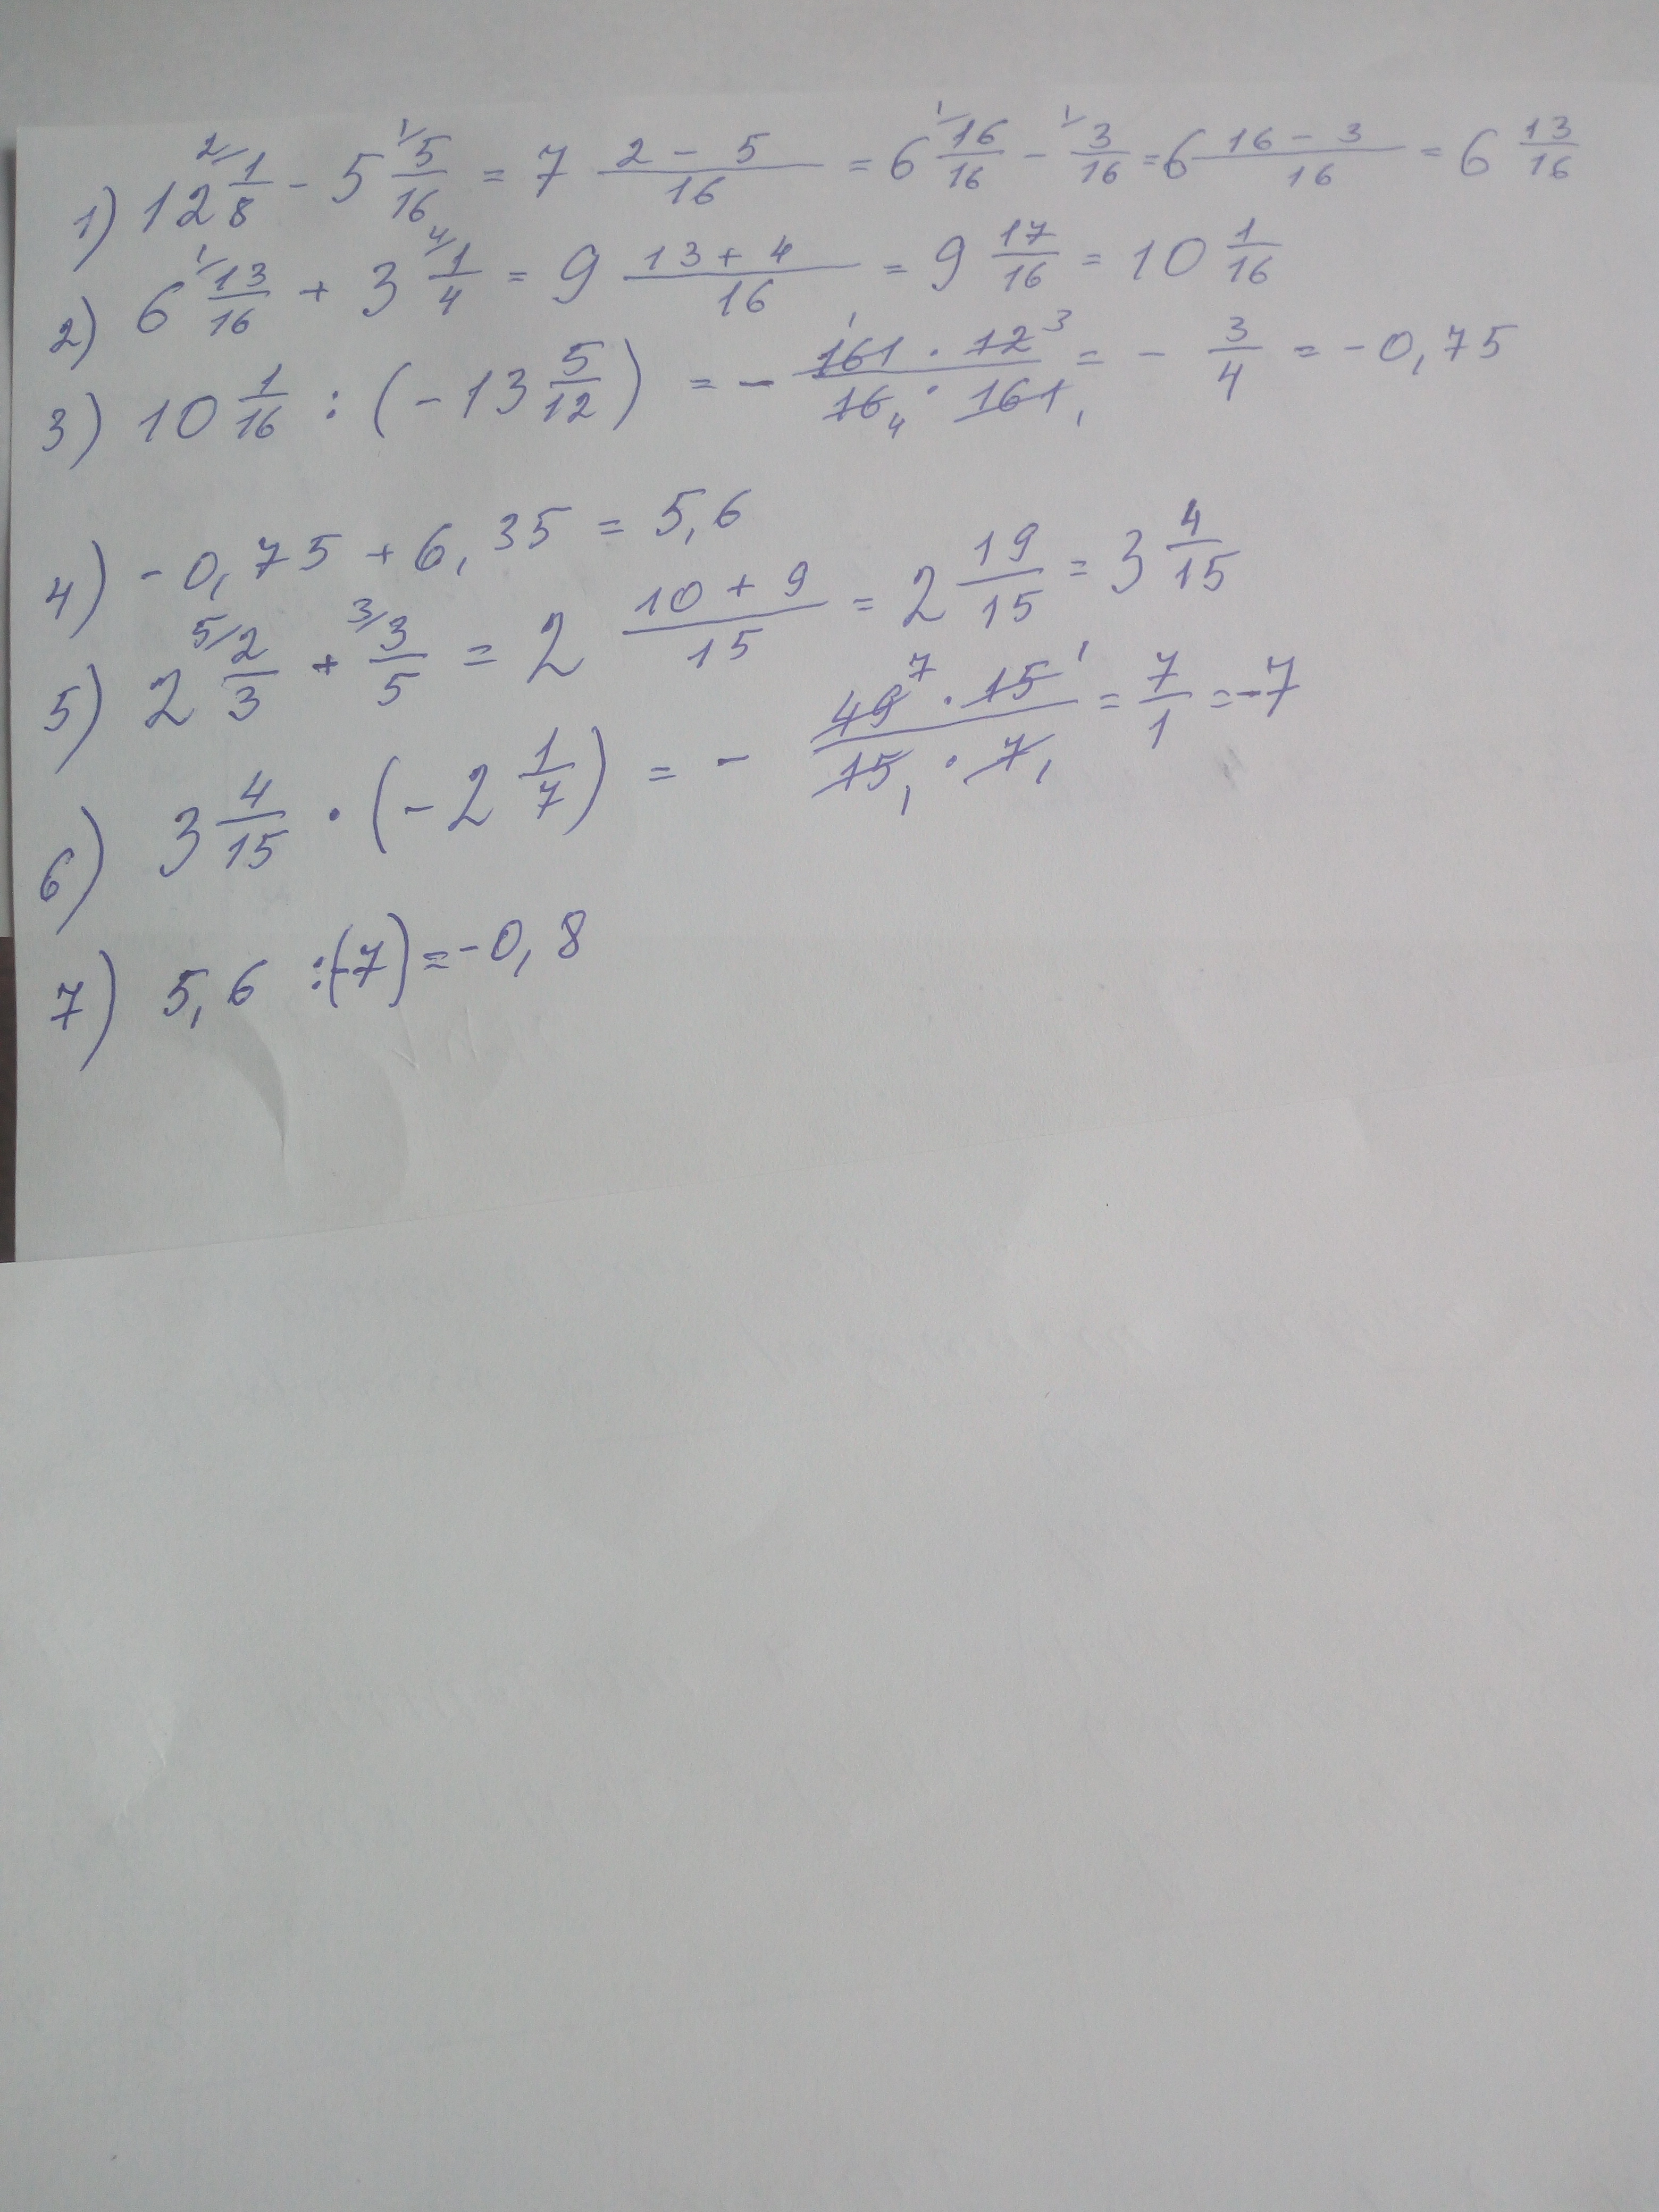 1) 12 2/ 1/8 - 5 1/ 5/16 = 7 (2 - 5)/16 = 6 1/ 16/16 - 1/ 3/16 = 6 (16 - 3)/16 = 6 13/16
2) 6 1/ 13/16 + 3 4/ 1/4 = 9 (13 + 4)/16 = 9 17/16 = 10 1/16
3) 10 1/16 : (-13 5/12) = - (161 1 · 12 3)/(16 4 · 161 1) = - 3/4 = -0,75
4) -0,75 + 6,35 = 5,6
5) 2 5/ 2/3 + 3/ 3/5 = 2 (10 + 9)/15 = 2 19/15 = 3 4/15
6) 3 4/15 · (-2 1/7) = - (49 7 · 15 1)/(15 1 · 7 1) = 7/1 = -7
7) 5,6 :(-7) = -0,8